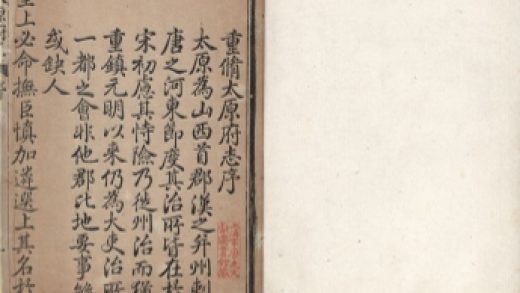 重脩太原府志序
太原為山西首郡漢之并州刺
唐之河東節度其治所皆在於
宋初慮其恃險乃徙州治而稱
重鎮元明以來仍為大吏治所
一都之會非他郡比地要事
或缺人
上必命撫臣慎加遴選上其名於